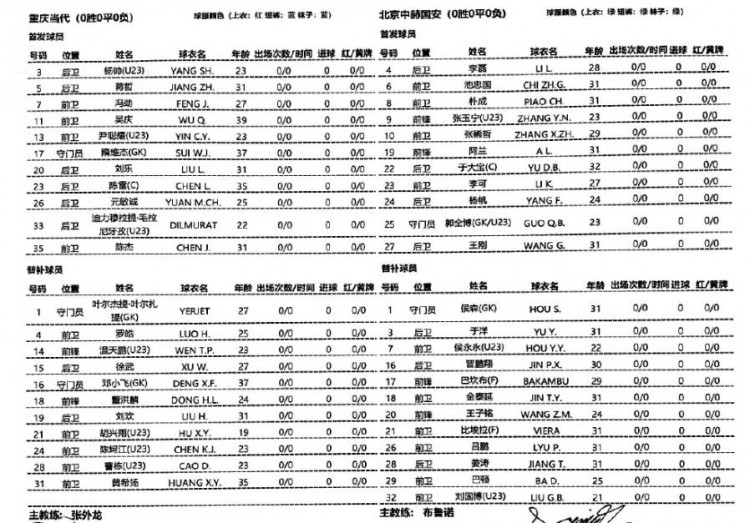 重庆当代（0胜0平0负） 球服颜色（上衣：红 短裤：蓝 袜子：蓝）
首发球员
号码 位置 姓名 球衣名 年龄 出场次数/时间 进球 红/黄牌
3 后卫 杨帅(U23) YANG SH. 23 0/0 0 0/0
5 后卫 蒋哲 JIANG ZH. 31 0/0 0 0/0
7 前卫 冯劲 FENG J. 27 0/0 0 0/0
11 前卫 吴庆 WU Q. 39 0/0 0 0/0
13 前卫 尹聪耀(U23) YIN C.Y. 23 0/0 0 0/0
17 守门员 隋维杰(GK) SUI W.J. 37 0/0 0 0/0
20 后卫 刘乐 LIU L. 31 0/0 0 0/0
23 后卫 陈雷(C) CHEN L. 35 0/0 0 0/0
26 后卫 元敏诚 YUAN M.CH. 25 0/0 0 0/0
33 后卫 迪力穆拉提·毛拉
尼牙孜(U23) DILMURAT 22 0/0 0 0/0
35 前卫 陈杰 CHEN J. 31 0/0 0 0/0
替补球员
号码 位置 姓名 球衣名 年龄 出场次数/时间 进球 红/黄牌
1 守门员 叶尔杰提·叶尔扎
提(GK) YERJET 27 0/0 0 0/0
4 前卫 罗皓 LUO H. 25 0/0 0 0/0
14 前锋 温天鹏(U23) WEN T.P. 23 0/0 0 0/0
15 后卫 徐武 XU W. 27 0/0 0 0/0
16 守门员 邓小飞(GK) DENG X.F. 37 0/0 0 0/0
18 前锋 董洪麟 DONG H.L. 24 0/0 0 0/0
19 后卫 刘欢 LIU H. 31 0/0 0 0/0
21 前卫 胡兴翔(U23) HU X.Y. 19 0/0 0 0/0
24 前卫 陈珂江(U23) CHEN K.J. 23 0/0 0 0/0
28 前卫 曹栋(U23) CAO D. 23 0/0 0 0/0
31 前卫 黄希扬 HUANG X.Y. 35 0/0 0 0/0
主教练：张外龙
北京中赫国安（0胜0平0负） 球服颜色（上衣：绿 短裤：绿 袜子：绿）
首发球员
号码 位置 姓名 球衣名 年龄 出场次数/时间 进球 红/黄牌
4 后卫 李磊 LI L. 28 0/0 0 0/0
6 前卫 池忠国 CHI ZH.G. 31 0/0 0 0/0
8 前卫 朴成 PIAO CH. 31 0/0 0 0/0
9 前锋 张玉宁(U23) ZHANG Y.N. 23 0/0 0 0/0
10 前卫 张稀哲 ZHANG X.ZH. 29 0/0 0 0/0
19 前锋 阿兰 A L. 31 0/0 0 0/0
22 后卫 于大宝(C) YU D.B. 32 0/0 0 0/0
23 前卫 李可 LI K. 27 0/0 0 0/0
24 后卫 杨帆 YANG F. 24 0/0 0 0/0
25 守门员 郭全博(GK/U23) GUO Q.B. 23 0/0 0 0/0
27 后卫 王刚 WANG G. 31 0/0 0 0/0
替补球员
号码 位置 姓名 球衣名 年龄 出场次数/时间 进球 红/黄牌
1 守门员 侯森(GK) HOU S. 31 0/0 0 0/0
3 后卫 于洋 YU Y. 31 0/0 0 0/0
7 前卫 侯永永(U23) HOU Y.Y. 22 0/0 0 0/0
16 后卫 晋鹏翔 JIN P.X. 30 0/0 0 0/0
17 前锋 巴坎布(F) BAKAMBU 29 0/0 0 0/0
18 前卫 金泰延 JIN T.Y. 31 0/0 0 0/0
20 前锋 王子铭 WANG Z.M. 24 0/0 0 0/0
21 前卫 比埃拉(F) VIERA 31 0/0 0 0/0
26 前卫 吕鹏 LYU P. 31 0/0 0 0/0
28 后卫 姜涛 JIANG T. 31 0/0 0 0/0
29 前卫 巴顿 BA D. 25 0/0 0 0/0
32 前卫 刘国博(U23) LIU G.B. 21 0/0 0 0/0
主教练：布鲁诺